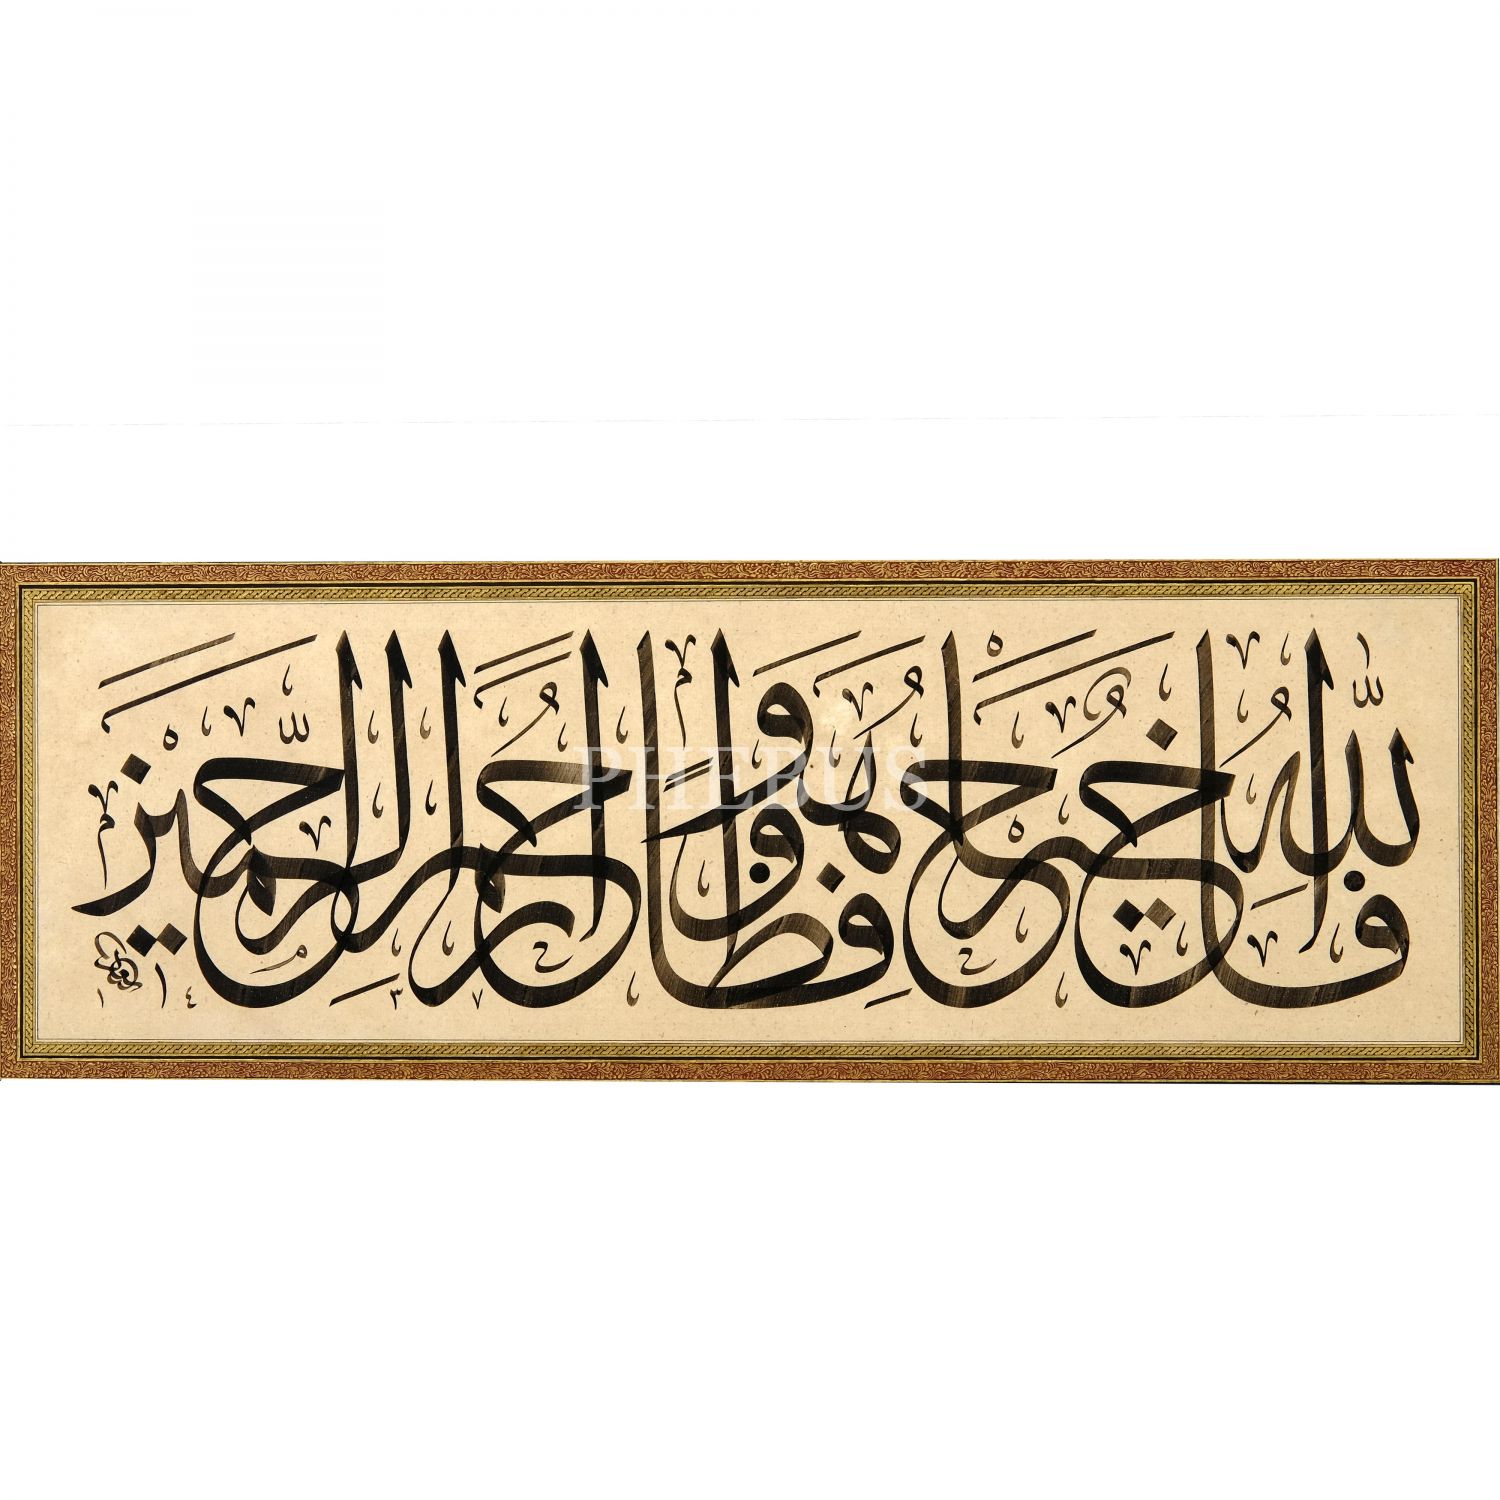 فَاللّٰهُ خَيْرٌ حَافِظًا وَهُوَ أَرْحَمُ الرَّاحِمِينَ
١٤٣٧
PHEBUS